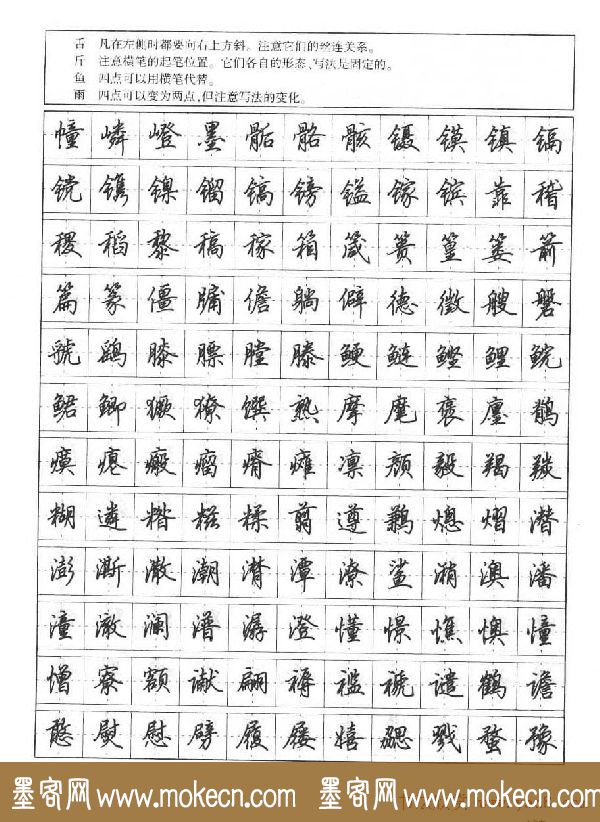 舌 凡在左侧时都要向右上方斜。注意它们的丝连关系。
斤 注意横笔的起笔位置。它们各自的形态、写法是固定的。
鱼 四点可以用横笔代替。
雨 四点可以变为两点,但注意写法的变化。
幢 嶙 嶝 墨 骺 骼 骸 镊 镆 镇 镉
镋 镌 镍 镏 镐 镑 镒 镓 镔 靠 稽
稷 稻 黎 稿 稼 箱 箴 篑 篁 篓 箭
篇 篆 僵 牖 儋 躺 僻 德 徵 艘 磐
虢 鹞 膝 膘 膛 滕 鲠 鲢 鲣 鲤 鲩
鲲 鲫 獗 獠 馔 熟 摩 麾 褒 廛 鹡
瘼 瘪 瘢 瘤 瘠 瘫 凛 颜 毅 羯 羰
糊 遴 糌 糍 糅 翦 遵 鹣 熜 熠 潜
澎 澌 澈 潮 潸 潭 潦 鲨 潲 澳 潘
潼 澈 澜 潽 潺 澄 懂 憬 憔 懊 憧
憎 寮 额 谳 翩 褥 褴 褫 谴 鹤 谵
憨 熨 慰 劈 履 屦 嬉 勰 戮 蝥 豫
墨客网 www.mokecn.com 墨客网 www.mokecn.com